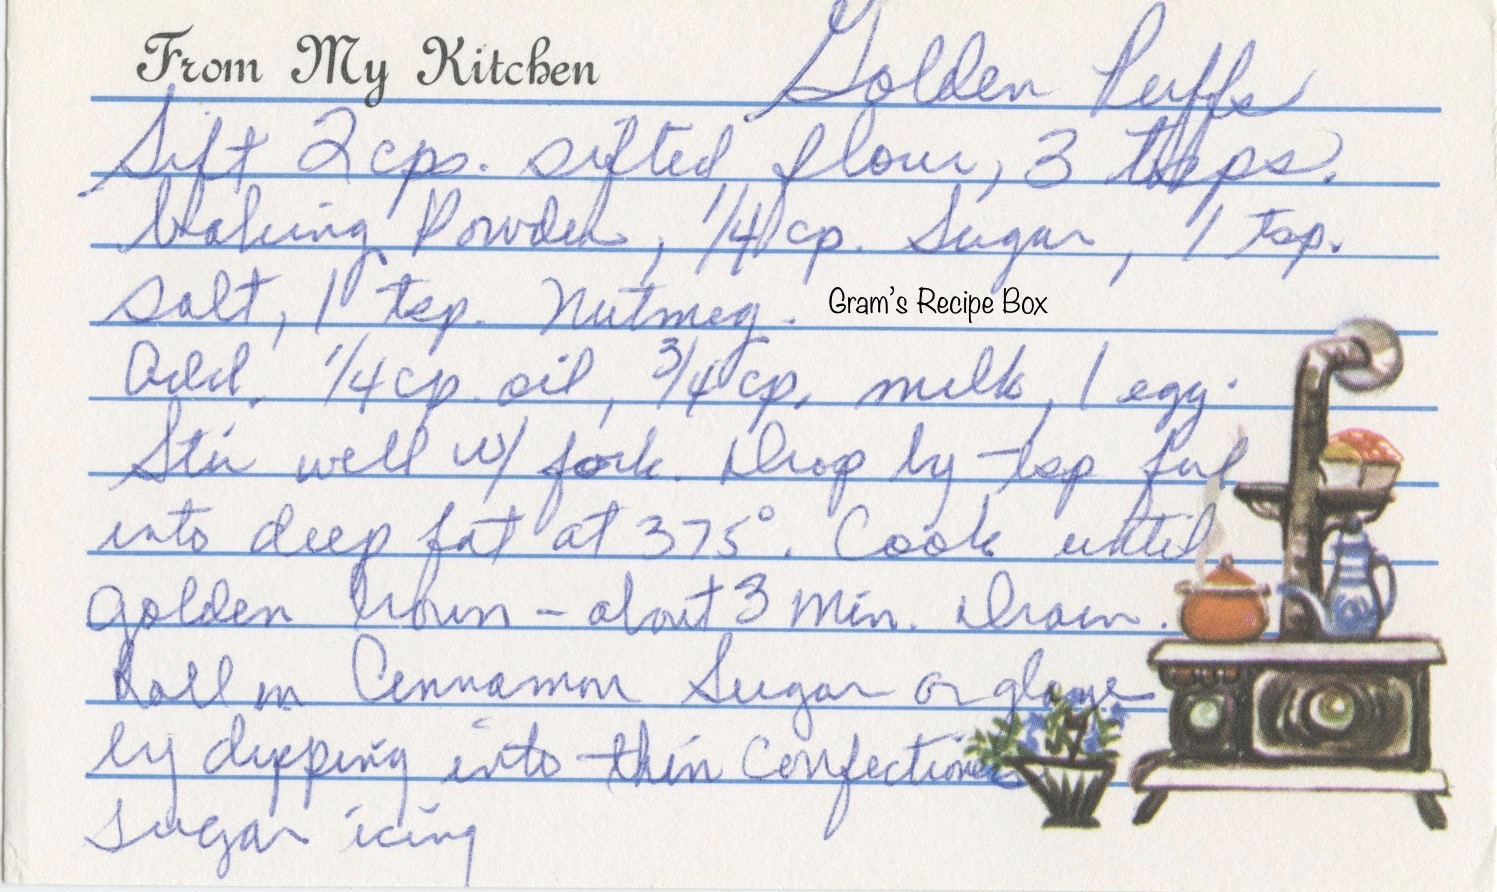 From My Kitchen
Golden Puffs
Sift 2 cps. sifted flour, 3 tsps.
baking Powder, 1/4 cp. Sugar, 1 tsp.
salt, 1 tsp. Nutmeg.
Gram's Recipe Box
Add. 1/4 cp. oil, 3/4 cp. milk, 1 egg.
Stir well w/ fork. Drop by tsp ful
into deep fat at 375°. Cook until
golden brown - about 3 min. Drain.
Roll in Cinnamon Sugar or glaze
by dipping into thin Confectioners
sugar icing